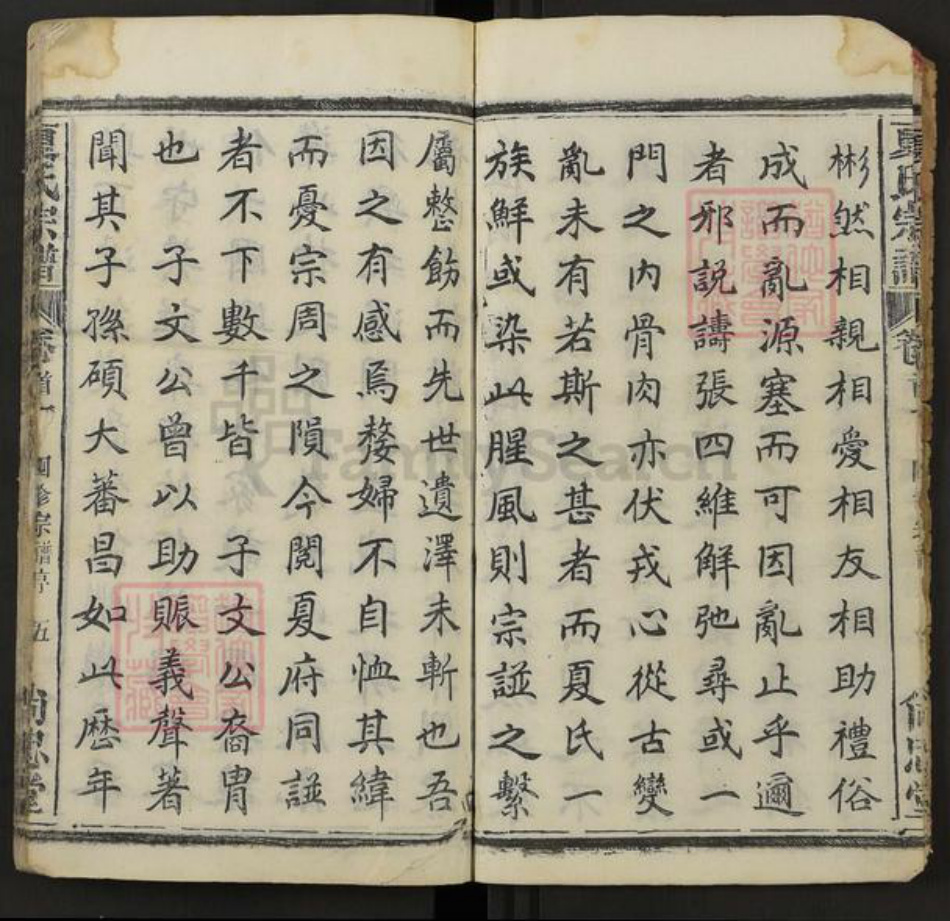 彬然相親相愛相友相助禮俗
成而亂源塞而可因亂止乎邇
者邪説譸張四維解弛尋或一
門之内骨肉亦伏戎心從古變
亂未有若斯之甚者而夏氏一
族鮮或染此腥風則宗諩之繫
屬整飭而先世遺澤未斬也吾
因之有感焉嫠婦不自恤其緯
而憂宗周之隕今閲夏府同諩
者不下數千皆 子文公裔胄
也 子文公曾以助賑義聲著
聞其子孫碩大蕃昌如此歷年
夏氏宗譜
卷首
宗譜序 五
FamilySearch